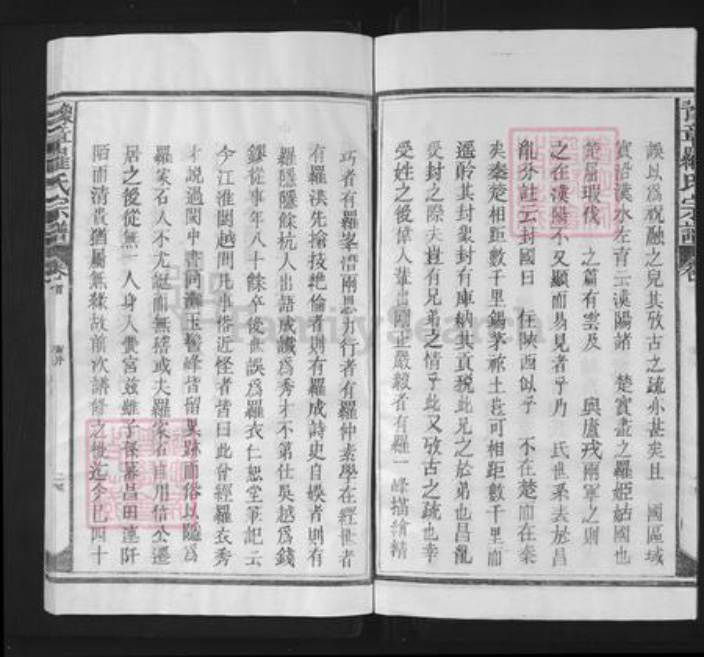 誤以爲祝融之兒其攷古之疏亦甚矣且 國區域
實沿漢水左 云漢陽諸 楚實盡之羅姬姞國也
楚屈瑕伐 之篇有云及 與盧戎兩軍之則
之在漢陽不又顯而易見者乎乃 氏世系表於昌
龍分註云封國曰 在陝西似乎 不在楚而在秦
矣秦楚相距數千里錫茅 土豈可相距數千里而
遙 其封象封有庳納其貢稅此兄之於弟也昌龍
受封之際夫豈有兄弟之情乎此又攷古之疏也幸
受姓之後偉人輩出剛正嚴毅者有羅一峰描繪精
巧者有羅 兩 力行者有羅仲素學在經世者
有羅 先 技絶倫者則有羅成詩史自娛者則有
羅隱隱餘杭人出語成讖爲秀才不第仕吳越爲錢
鏐從事年八十餘卒後世誤爲羅衣仁恕堂筆記云
今江淮閩越間凡事俗近怪者皆曰此曾經羅衣秀
才說過閩中書同 玉 峰皆留異跡而俗以隱爲
羅家石人不尤誕而無稽或夫羅家石自用信公遷
居之後從無一人身入黌宮茲雖子孫蕃昌田連阡
陌而清貴猶屬無 故前次譜 之 迄今已四十
豫章羅氏宗譜 卷首
豫章羅氏宗譜 卷
FamilySearch